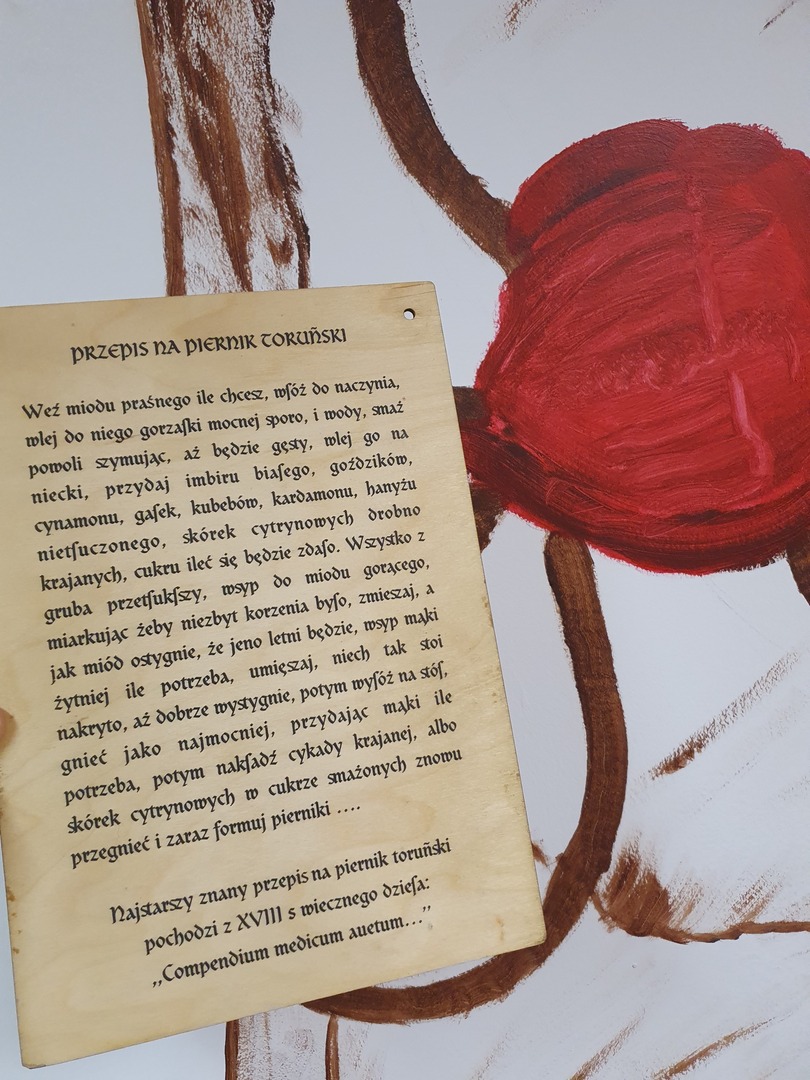 PRZEPIS NA PIERNIK TORUŃSKI
Weź miodu praśnego ile chcesz, włóż do naczynia,
wlej do niego gorzałki mocnej sporo, i wody, smaż
powoli szymując, aż będzie gęsty, wlej go na
niecki, przydaj imbiru białego, goździków,
cynamonu, gałek, kubebów, kardamonu, hanyżu
nietłuczonego, skórek cytrynowych drobno
krajanych, cukru ileć się będzie zdało. Wszystko z
gruba przetłukłszy, wsyp do miodu gorącego,
miarkując żeby niezbyt korzenia było, zmieszaj, a
jak miód ostygnie, że jeno letni będzie, wsyp mąki
żytniej ile potrzeba, umięszaj, niech tak stoi
nakryto, aż dobrze wystygnie, potym wyłóż na stół,
gnieć jako najmocniej, przydając mąki ile
potrzeba, potym nakładź cykady krajanej, albo
skórek cytrynowych w cukrze smażonych znowu
przegnieć i zaraz formuj pierniki ....
Najstarszy znany przepis na piernik toruński
pochodzi z XVIII s wiecznego dzieła:
„Compendium medicum auetum...”